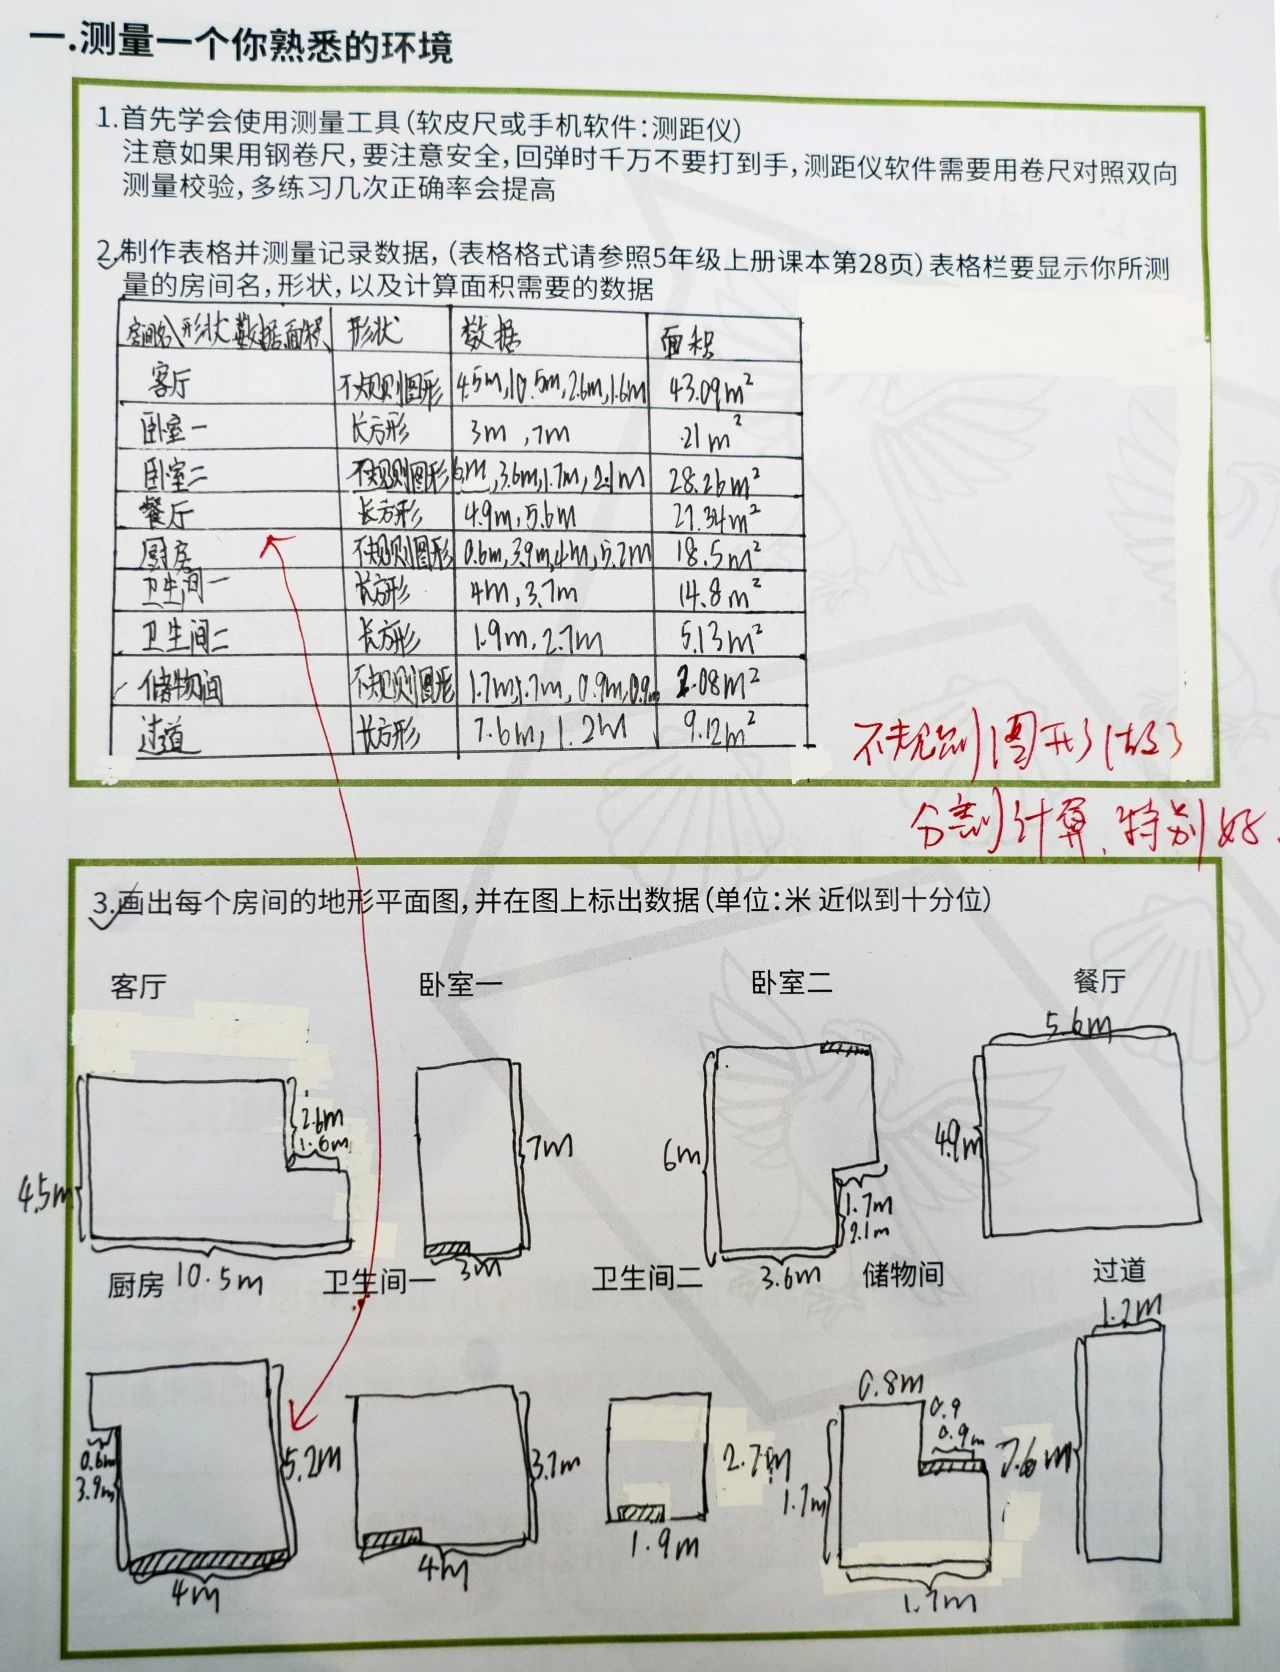 一.测量一个你熟悉的环境
1.首先学会使用测量工具(软皮尺或手机软件:测距仪)
注意如果用钢卷尺,要注意安全,回弹时千万不要打到手,测距仪软件需要用卷尺对照双向
测量校验,多练习几次正确率会提高
2.制作表格并测量记录数据,(表格格式请参照5年级上册课本第28页)表格栏要显示你所测
量的房间名,形状,以及计算面积需要的数据
房间名 形状 数据 面积 形状 数据 面积
客厅 不规则图形 4.5m,10.5m,2.6m,1.6m 43.09m²
卧室一 长方形 3m,7m 21m²
卧室二 不规则图形 6m,3.6m,1.7m,2.1m 28.26m²
餐厅 长方形 4.9m,5.6m 27.34m²
厨房 不规则图形 0.6m,3.9m,4m,5.2m 18.5m²
卫生间一 长方形 4m,3.7m 14.8m²
卫生间二 长方形 1.9m,2.7m 5.13m²
储物间 不规则图形 1.7m,1.7m,0.9m,0.9m 2.08m²
过道 长方形 7.6m,1.2m 9.12m²
不规则图形做了
分割计算,特别好!
3.画出每个房间的地形平面图,并在图上标出数据(单位:米 近似到十分位)
客厅 卧室一 卧室二 餐厅
5.6m
2.6m
1.6m
7m
6m
4.9m
4.5m
1.7m
2.1m
10.5m
3m
3.6m
厨房 卫生间一 卫生间二 储物间 过道
1.2m
0.8m
0.9
0.9m
0.6m
3.9m
5.2m
3.7m
2.7m
1.7m
7.6m
4m
4m
1.9m
1.7m